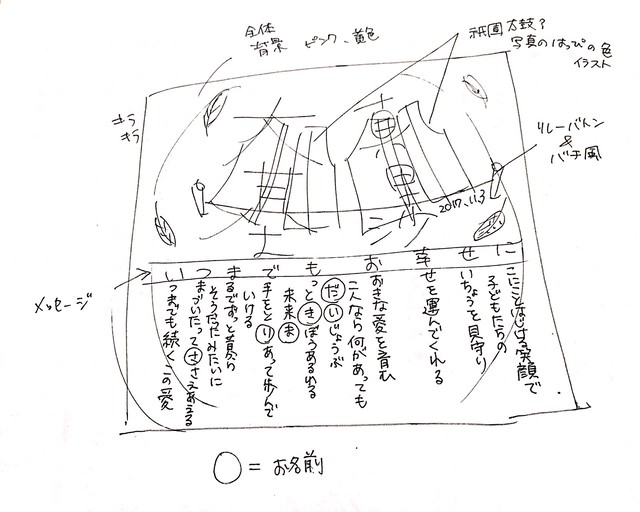 全体
背景 ピンク、黄色
祇園太鼓?
写真のはっぴの色
イラスト
きら
きら
リレーバトン
&
バチ風
2017.11.3
メッセージ
にこにことはじける笑顔で
子どもたちの
せいちょうを見守り
幸せを運んでくれる
おおきな愛を育む
二人なら何があっても
だいじょうぶ
もっときぼうあふれる
未来ま
で手をとりあって歩んで
いける
まるでずっと昔から
そうだったみたいに
つまづいたってささえあえる
いつまでも続くこの愛
○=お名前